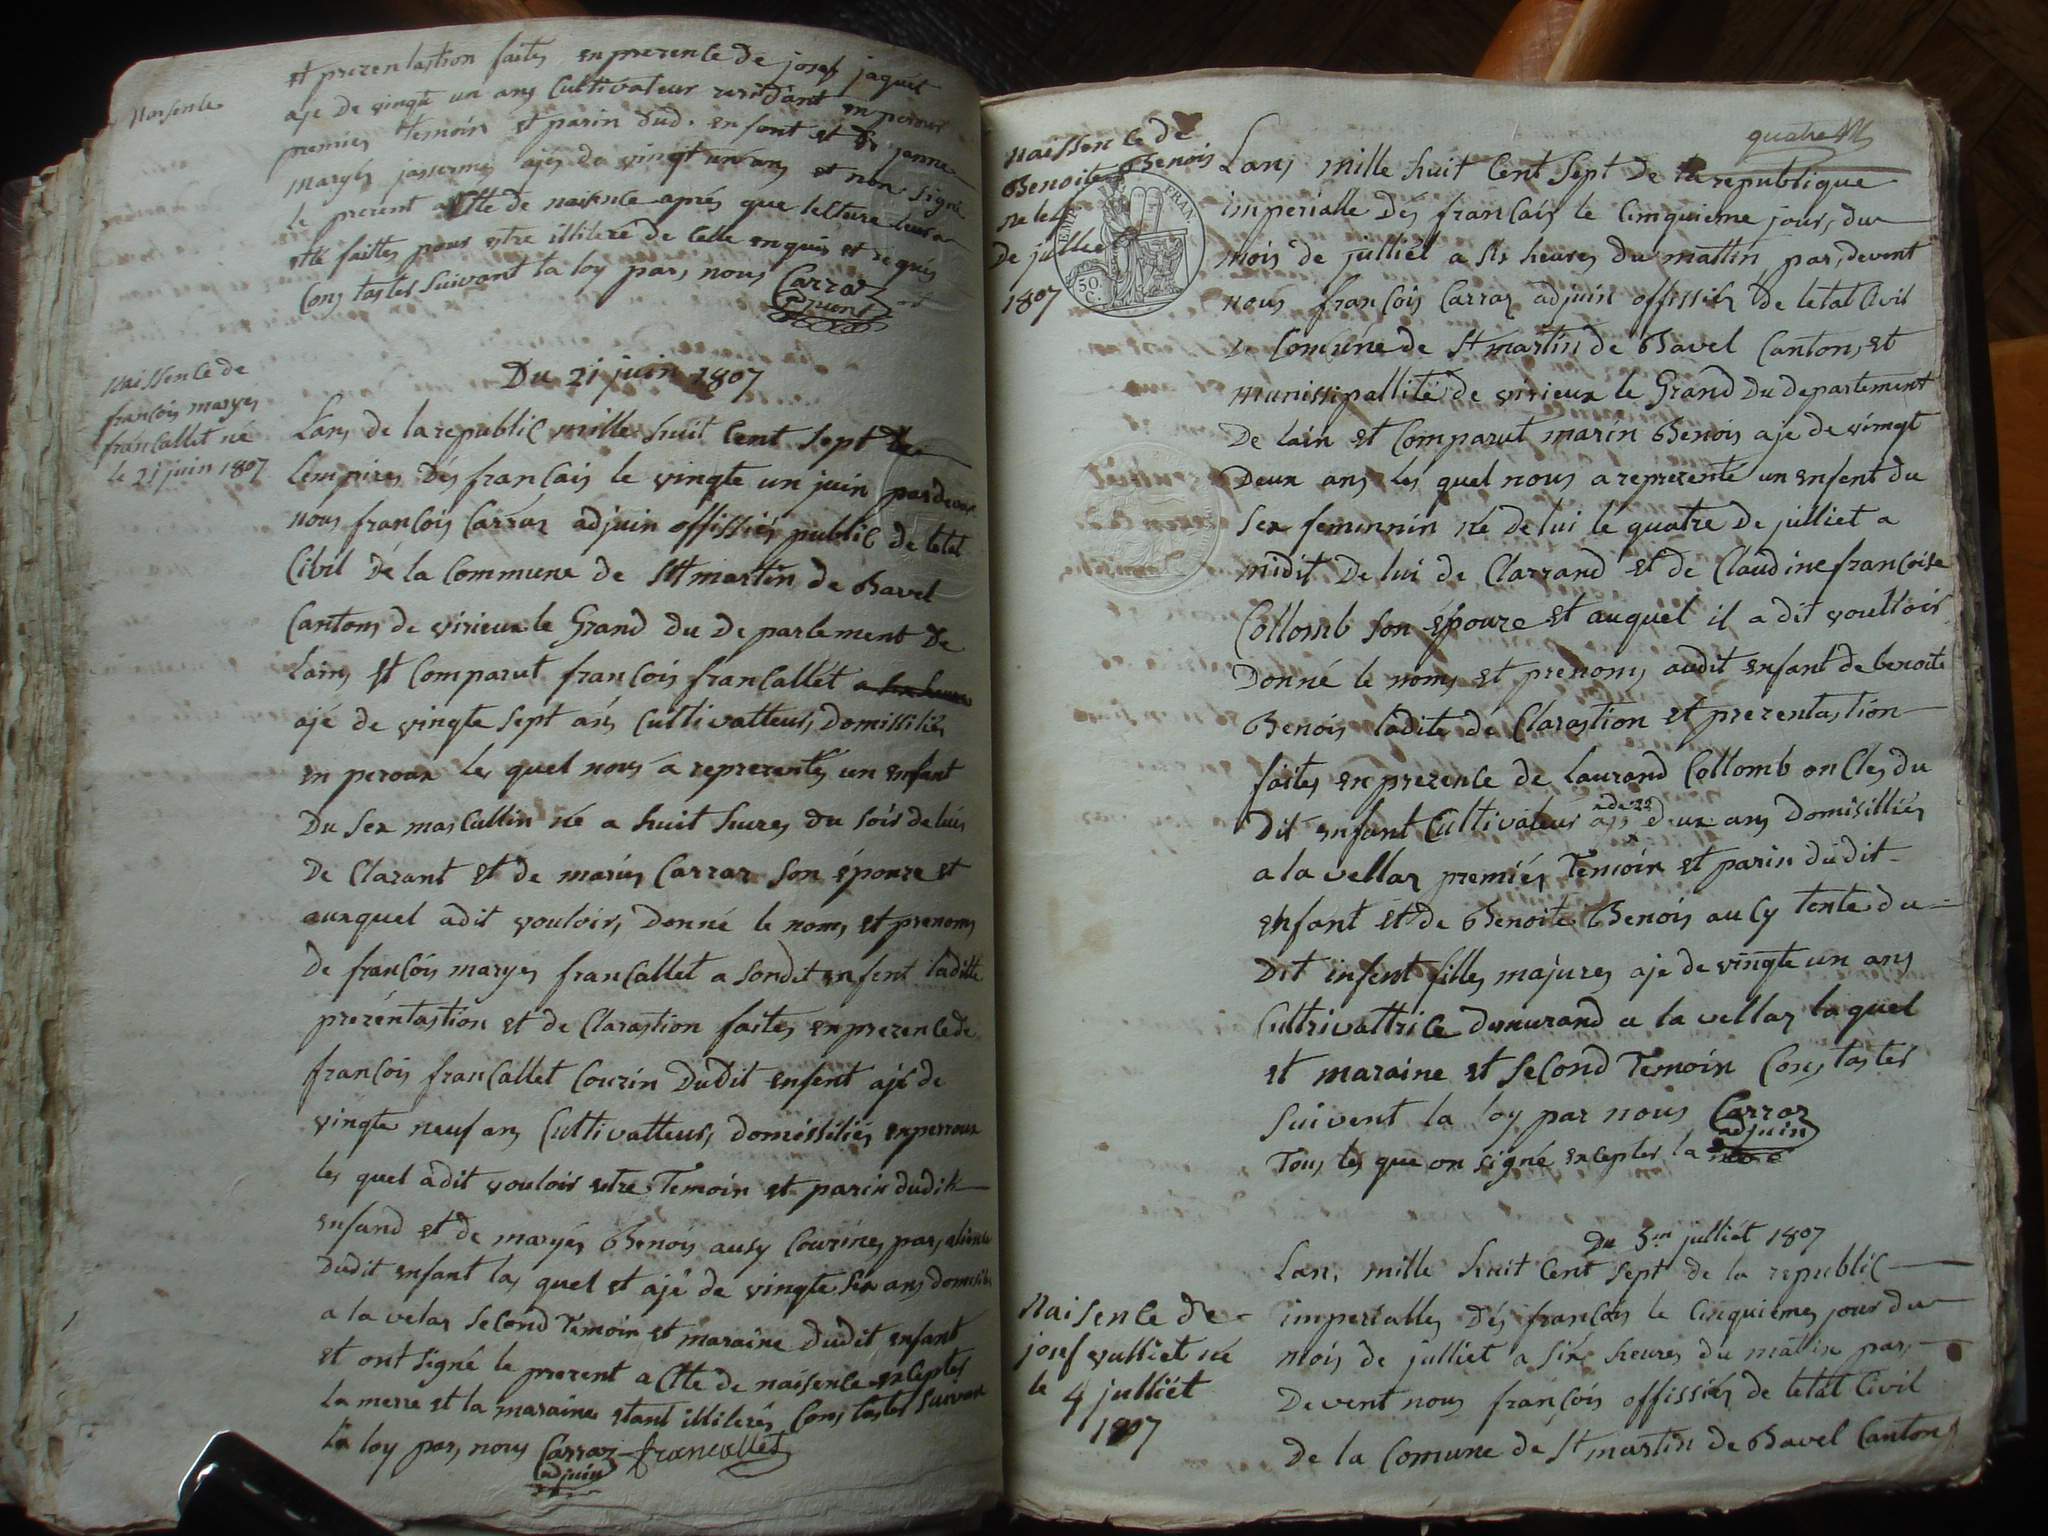 Naisence
et prezentastion faites en prezence de josef jaquet
aje de vingte un ans Cultivateur residant en peroux
premier temoin et parin dud. enfent et de janne
maryes jassermes ajés de vingt un ans et non signe
le prezent actte de naisence aprés que lecture leur a
etté faittes pour etre illiteré de celle enquis et requis
Constaster suivant la loy par, nous Carraz
Naissence de
francois maryes
francallet né
le 21 juin 1807
Du 21 juin 1807
Lan, de la republic mille huit Cent Sept de
Lempires Dés francais le vingte un juin pardevent
nous francois Carraz adjuin offissiés public de letat
Civil Dé la Commune de St martin de Bavel
Cantons de virieux le Grand du Departement de
Lain, et Comparut francois francallét
ajé de vingte sept ans Cultivatteur, Domissiliés
en peroux les quel nous a reprezentés un enfant
Du Sex mascullin né a huit hures du soir de lui
De Clarant et de maries Carraz son épouze et
auxquel adit vouloir, Donné le nom, et prenoms
De francois maryes francallet a sondit enfent laditte
prezéntastion et de Clarastion faites enprezence de
francois francallet Couzin Dudit enfent ajé de
vingte neuf ans Cultivatteur, domissiliés enperroux
les quel adit vouloir etre Temoin et parin dudit
enfand et de maryés Benois ausy Couzines par, aliance
Dudit enfant las quel et ajé de vingte six ans domisili
a la velaz Second Temoin et maraine Dudit enfant
et ont signé le prezent actte de naisence exceptes
la merre et la maraine etant illiterés, Constaster suivant
la loy par, nous Carraz francallet
adjuin
quatre
Naissence de
Benoite Benois
né le 4
De julliet
1807
Lan, mille huit Cent Sept De la republique
imperialle Dés francais le Cinquieme jour, du
mois de julliét a six heures du mattin par, devent
nous francois Carraz adjuin offissiés de letat Civil
De Comune de St martin de Bavel Canton, et
munissipallité de virieux le Grand Du departement
De lain et Comparut marin Benois aje de vingt
Deux ans les quel nous a reprezenté un enfent du
Sex feminnin né de lui le quatre de julliet a
midit De lui de Clarrand et de Claudine francoise
Collomb son épouze et auquel il a dit voulloir
Donné le noms et prenom, audit enfant de benoite
Benois ladite dé Clarastion et prezentastion
faites en prezence de Laurand Collomb oncles du
Dit enfant Cultivateur ajs deux ans Domisilliés
a la vellaz premiés Temoin et parin dudit
enfant et de Benoite Benois aucy tente du
Dit enfent filles majures aje de vingte un ans
Cultrivattrice demurand a la vellaz laquel
et maraine et Second Temoin Constaster
suivent la loy par nous Carraz
adjuin
Tous les que on signé excepter la
Du 5m julliét 1807
Naisence de
josef vulliet né
le 4 julliét
1807
Lan, mille huit Cent Sept de la republic
imperialles Dés francois le Cinquiemes jour du
mois de julliet a six heures du matin par,
Devent nous françois offissiés de letat Civil
De la Comune de St martin de Bavel Canton